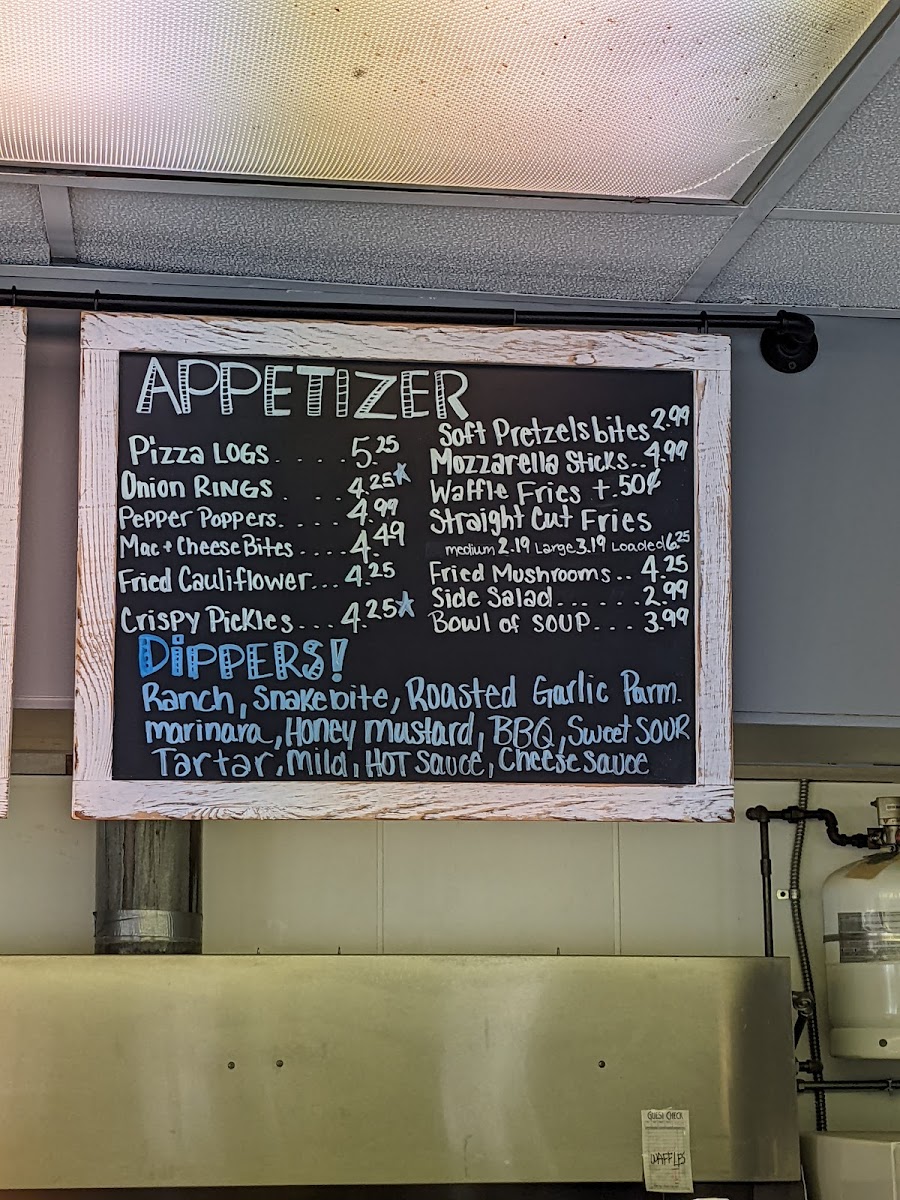 APPETIZER
Pizza LOGS . . . . . 5.25
Onion RINGS . . . 4.25★
Pepper Poppers. . . . 4.99
Mac + Cheese Bites . . . . 4.49
Fried Cauliflower... 4.25
Crispy Pickles.... 4.25★
Soft Pretzels bites 2.99
Mozzarella Sticks.. 4.99
Waffle Fries +.50¢
Straight Cut Fries
medium 2.19 Large 3.19 Loaded 6.25
Fried Mushrooms.. 4.25
Side Salad....... 2.99
Bowl of SOUP.... 3.99
DiPPERS!
Ranch, Snakebite, Roasted Garlic Parm.
marinara, Honey mustard, BBQ, Sweet SOUR
Tartar, Mild, HOT sauce, Cheese sauce
GUEST CHECK
WAFFLES